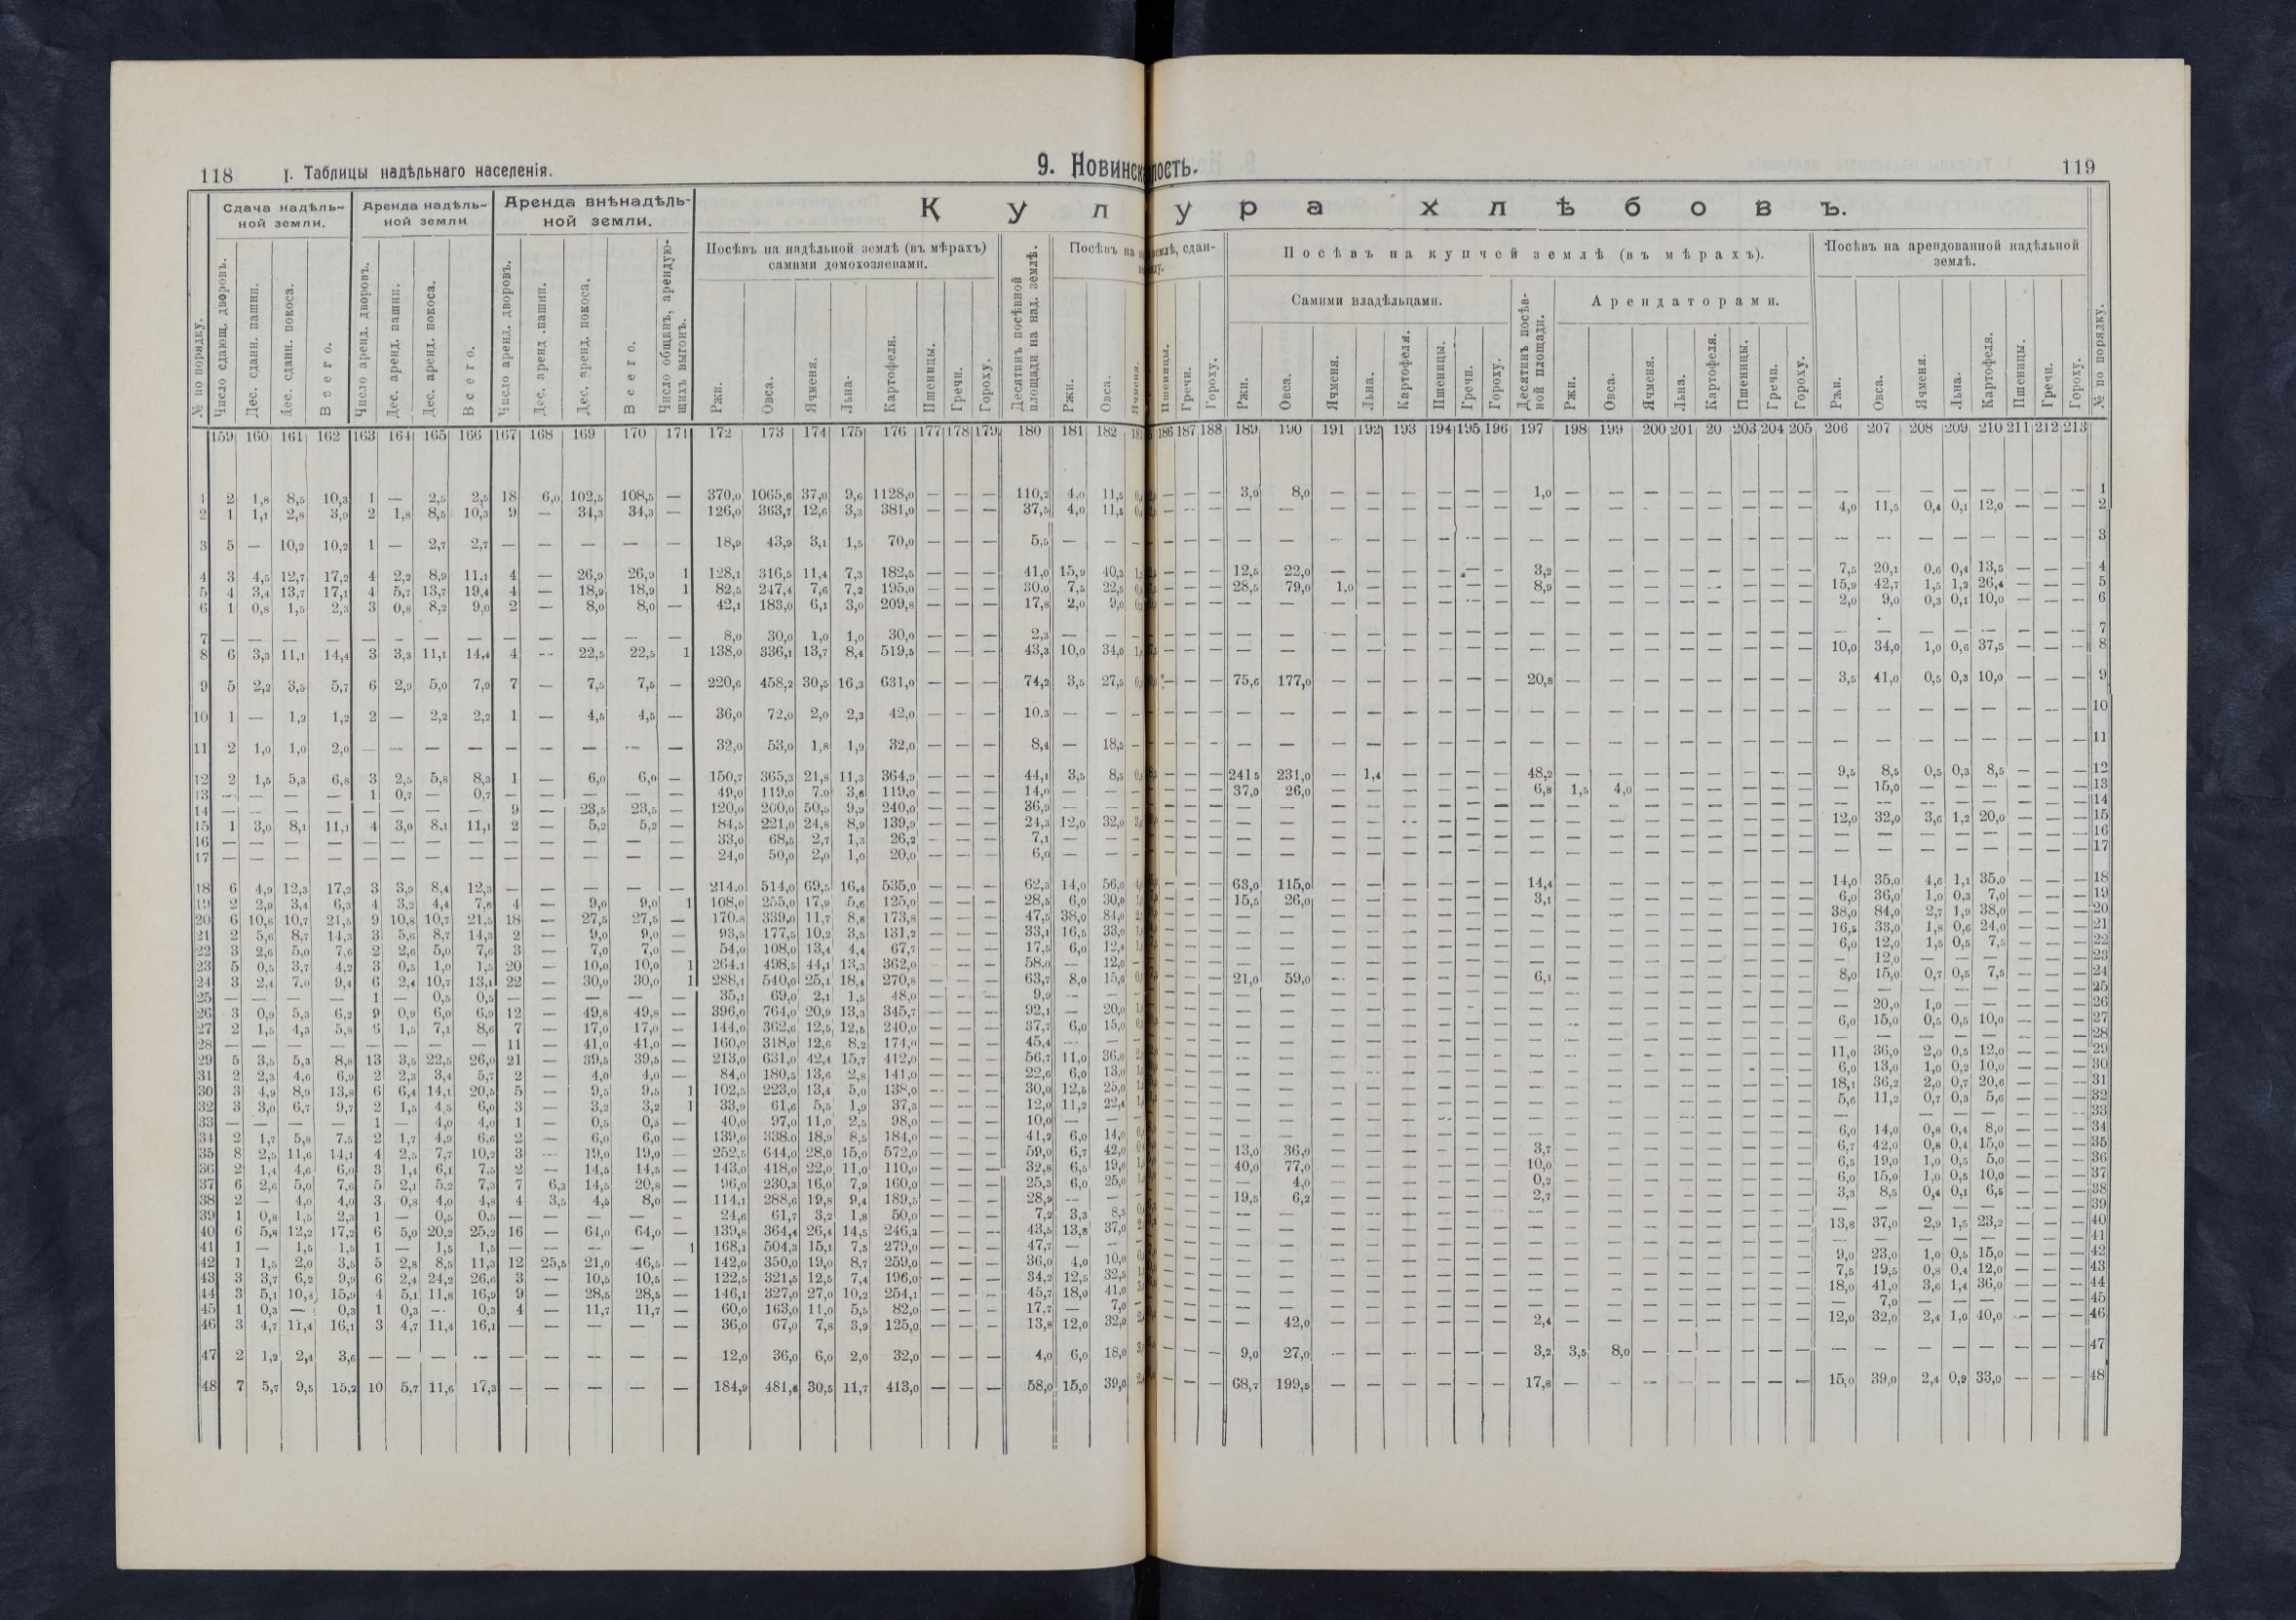 118 I. Таблицы надѣльнаго населенія.
9. Новинск
Сдача надѣль- ной земли.
Аренда надѣль- ной земли
Аренда внѣнадѣль- ной земли.
К у л
Посѣвъ на надѣльной землѣ (въ мѣрахъ) самими домохозяевами.
Посѣвъ на
№ по порядку. Число сдающ. дворовъ. Дес. сданн. пашни. Дес. сданн. покоса. Всего. Число аренд. дворовъ. Дес. аренд. пашни. Дес. аренд. покоса. Всего. Число аренд. дворовъ. Дес. аренд. пашни. Дес. аренд. покоса. Всего. Число общинъ, арендую- щихъ выгонъ. Ржи. Овса. Ячменя. Льна. Картофеля. Пшеницы. Гречи. Гороху. Десятинъ посѣвной площади на над. землѣ. Ржи. Овса. Ячменя.
159 160 161 162 163 164 165 166 167 168 169 170 171 172 173 174 175 176 177 178 179 180 181 182
1 2 1,8 8,5 10,3 1 — 2,5 2,5 18 6,0 102,5 108,5 — 370,0 1065,6 37,0 9,6 1128,0 — — — 110,2 4,0 11,5
2 1 1,1 2,8 3,9 2 1,8 8,5 10,3 9 — 34,3 34,3 — 126,0 363,7 12,6 3,3 381,0 — — — 37,5 4,0 11,5
3 5 — 10,2 10,2 1 — 2,7 2,7 — — — — — 18,9 43,9 3,1 1,5 70,0 — — — 5,5 — —
4 3 4,5 12,7 17,2 4 2,2 8,9 11,1 4 — 26,9 26,9 1 128,1 316,5 11,4 7,3 182,5 — — — 41,0 15,9 40,3
5 4 3,4 13,7 17,1 4 5,7 13,7 19,4 4 — 18,9 18,9 1 82,5 247,4 7,6 7,2 195,0 — — — 30,0 7,5 22,5
6 1 0,8 1,5 2,3 3 0,8 8,2 9,0 2 — 8,0 8,0 — 42,1 183,0 6,1 3,0 209,8 — — — 17,8 2,0 9,0
7 — — — — — — — — — — — — — 8,0 30,0 1,0 1,0 30,0 — — — 2,3 — —
8 6 3,3 11,1 14,4 3 3,3 11,1 14,4 4 — 22,5 22,5 1 138,0 336,1 13,7 8,4 519,5 — — — 43,3 10,0 34,0
9 5 2,2 3,5 5,7 6 2,9 5,0 7,9 7 — 7,5 7,5 — 220,6 458,2 30,5 16,3 631,0 — — — 74,2 3,5 27,5
10 1 — 1,2 1,2 2 — 2,2 2,2 1 — 4,5 4,5 — 36,0 72,0 2,0 2,3 42,0 — — — 10,3 — —
11 2 1,0 1,0 2,0 — — — — — — — — — 32,0 53,0 1,8 1,9 32,0 — — — 8,4 — 18,5
12 2 1,5 5,3 6,8 3 2,5 5,8 8,3 1 — 6,0 6,0 — 150,7 365,3 21,8 11,3 364,9 — — — 44,1 3,5 8,5
13 — — — — 1 0,7 — 0,7 — — — — — 49,0 119,0 7,0 3,6 119,0 — — — 14,0 — —
14 — — — — — — — — 9 — 23,5 23,5 — 120,0 200,0 50,5 9,9 240,0 — — — 36,9 — —
15 1 3,0 8,1 11,1 4 3,0 8,1 11,1 2 — 5,2 5,2 — 84,5 221,0 24,8 8,9 139,9 — — — 24,3 12,0 32,0
16 — — — — — — — — — — — — — 33,0 68,5 2,7 1,3 26,2 — — — 7,1 — —
17 — — — — — — — — — — — — — 24,0 50,0 2,0 1,0 20,0 — — — 6,0 — —
18 6 4,9 12,3 17,2 3 3,9 8,4 12,3 — — — — — 214,0 514,0 69,5 16,4 535,0 — — — 62,3 14,0 56,0
19 2 2,9 3,4 6,3 4 3,2 4,4 7,6 4 — 9,0 9,0 1 108,0 255,0 17,9 5,6 125,0 — — — 28,5 6,0 30,0
20 6 10,8 10,7 21,5 9 10,8 10,7 21,5 18 — 27,5 27,5 — 170,8 339,0 11,7 8,8 173,8 — — — 47,5 38,0 84,0
21 2 5,6 8,7 14,3 3 5,6 8,7 14,3 2 — 9,0 9,0 — 93,5 177,5 10,2 3,5 131,2 — — — 33,1 16,5 33,0
22 3 2,6 5,0 7,6 2 2,6 5,0 7,6 3 — 7,0 7,0 — 54,0 108,0 13,4 4,4 67,7 — — — 17,5 6,0 12,4
23 5 0,5 3,7 4,2 3 0,5 1,0 1,5 20 — 10,0 10,0 1 264,1 498,5 44,1 13,3 362,0 — — — 58,0 — 12,0
24 3 2,4 7,0 9,4 6 2,4 10,7 13,1 22 — 30,0 30,0 1 288,1 540,0 25,1 18,4 270,8 — — — 63,7 8,0 15,0
25 — — — — 1 — 0,5 0,5 — — — — — 35,1 69,0 2,1 1,5 48,0 — — — 9,9 — —
26 3 0,9 5,3 6,2 9 0,9 6,0 6,9 12 — 49,8 49,8 — 396,0 764,0 20,9 13,3 345,7 — — — 92,1 — 20,0
27 2 1,5 4,3 5,8 6 1,5 7,1 8,6 7 — 17,0 17,0 — 144,0 362,6 12,5 12,5 240,0 — — — 37,7 6,0 15,0
28 — — — — — — — — 11 — 41,0 41,0 — 160,0 318,0 12,6 8,2 174,0 — — — 45,4 — —
29 5 3,5 5,3 8,8 13 3,5 22,5 26,0 21 — 39,5 39,5 — 213,0 631,0 42,4 15,7 412,0 — — — 56,7 11,0 36,0
31 2 2,3 4,6 6,9 2 2,3 3,4 5,7 2 — 4,0 4,0 — 84,0 180,5 13,6 2,8 141,0 — — — 22,6 6,0 13,0
30 3 4,9 8,9 13,8 6 6,4 14,1 20,5 5 — 9,5 9,5 1 102,5 223,0 13,4 5,0 138,0 — — — 30,0 12,5 25,0
32 3 3,0 6,7 9,7 2 1,5 4,5 6,0 3 — 3,2 3,2 1 33,9 61,6 5,5 1,9 37,3 — — — 12,0 11,2 22,4
33 — — — — 1 — 4,0 4,0 1 — 0,5 0,5 — 40,0 97,0 11,0 2,5 98,0 — — — 10,0 — —
34 2 1,7 5,8 7,5 2 1,7 4,9 6,6 2 — 6,0 6,0 — 139,0 338,0 18,9 8,5 184,0 — — — 41,2 6,0 14,0
35 8 2,5 11,6 14,1 4 2,5 7,7 10,2 3 — 19,0 19,0 — 252,5 644,0 28,0 15,0 572,0 — — — 59,0 6,7 42,0
36 2 1,4 4,6 6,0 3 1,4 6,1 7,5 2 — 14,5 14,5 — 143,0 418,0 22,0 11,0 110,0 — — — 32,8 6,5 19,0
37 6 2,6 5,0 7,6 5 2,1 5,2 7,3 7 6,3 14,5 20,8 — 96,0 230,3 16,0 7,9 160,0 — — — 25,3 6,0 25,0
38 2 — 4,0 4,0 3 0,8 4,0 4,8 4 3,5 4,5 8,0 — 114,1 288,6 19,8 9,4 189,5 — — — 28,9 — —
39 1 0,8 1,5 2,3 1 — 0,5 0,5 — — — — — 24,6 61,7 3,2 1,8 50,0 — — — 7,2 3,3 8,5
40 6 5,8 12,2 17,2 6 5,0 20,2 25,2 16 — 64,0 64,0 — 139,8 364,4 26,4 14,5 246,3 — — — 43,5 13,8 37,0
41 1 — 1,5 1,5 1 — 1,5 1,5 — — — — 1 168,1 504,3 15,1 7,5 279,0 — — — 47,7 — —
42 1 1,5 2,0 3,5 5 2,8 8,5 11,3 12 25,5 21,0 46,5 — 142,0 350,0 19,0 8,7 259,0 — — — 36,0 4,0 10,0
43 3 3,7 6,2 9,9 6 2,4 24,2 26,6 3 — 10,5 10,5 — 122,5 321,5 12,5 7,4 196,0 — — — 34,2 12,5 32,5
44 3 5,1 10,8 15,9 4 5,1 11,8 16,9 9 — 28,5 28,5 — 146,1 327,0 27,0 10,2 254,1 — — — 45,7 18,0 41,0
45 1 0,3 — 0,3 1 0,3 — 0,3 4 — 11,7 11,7 — 60,0 163,0 11,0 5,5 82,0 — — — 17,7 — 7,0
46 3 4,7 11,4 16,1 3 4,7 11,4 16,1 — — — — — 36,0 67,0 7,8 3,9 125,0 — — — 13,8 12,0 32,0
47 2 1,2 2,4 3,6 — — — — — — — — — 12,0 36,0 6,0 2,0 32,0 — — — 4,0 6,0 18,0
48 7 5,7 9,5 15,2 10 5,7 11,6 17,3 — — — — — 184,9 481,6 30,5 11,7 413,0 — — — 58,0 15,0 39,0
лость. 119
у р а х л ѣ б о в ъ.
землѣ, сдан-
Посѣвъ на купчей землѣ (въ мѣрахъ).
Посѣвъ на арендованной надѣльной землѣ.
Самими владѣльцами.
Арендаторами.
Пшеницы. Гречи. Гороху. Ржи. Овса. Ячменя. Льна. Картофеля. Пшеницы. Гречи. Гороху. Десятинъ посѣв- ной площади. Ржи. Овса. Ячменя. Льна. Картофеля. Пшеницы. Гречи. Гороху. Ржи. Овса. Ячменя. Льна. Картофеля. Пшеницы. Гречи. Гороху. № по порядку.
186 187 188 189 190 191 192 193 194 195 196 197 198 199 200 201 20 203 204 205 206 207 208 209 210 211 212 213
— — — 3,0 8,0 — — — — — — 1,0 — — — — — — — — — — — — — — — — 1
— — — — — — — — — — — — — — — — — — — — 4,0 11,5 0,4 0,1 12,0 — — — 2
— — — — — — — — — — — — — — — — — — — — — — — — — — — — 3
— — — 12,5 22,0 — — — — — — 3,2 — — — — — — — — 7,5 20,1 0,6 0,4 13,5 — — — 4
— — — 28,5 79,0 1,0 — — — — — 8,9 — — — — — — — — 15,9 42,7 1,5 1,2 26,4 — — — 5
— — — — — — — — — — — — — — — — — — — — 2,0 9,0 0,3 0,1 10,0 — — — 6
— — — — — — — — — — — — — — — — — — — — — — — — — — — — 7
— — — — — — — — — — — — — — — — — — — — 10,0 34,0 1,0 0,6 37,5 — — — 8
— — — 75,6 177,0 — — — — — — 20,8 — — — — — — — — 3,5 41,0 0,5 0,3 10,0 — — — 9
— — — — — — — — — — — — — — — — — — — — — — — — — — — — 10
— — — — — — — — — — — — — — — — — — — — — — — — — — — — 11
— — — 241,5 231,0 — 1,4 — — — — 48,2 — — — — — — — — 9,5 8,5 0,5 0,3 8,5 — — — 12
— — — 37,0 26,0 — — — — — — 6,8 1,5 4,0 — — — — — — — 15,0 — — — — — — 13
— — — — — — — — — — — — — — — — — — — — — — — — — — — — 14
— — — — — — — — — — — — — — — — — — — — 12,0 32,0 3,6 1,2 20,0 — — — 15
— — — — — — — — — — — — — — — — — — — — — — — — — — — — 16
— — — — — — — — — — — — — — — — — — — — — — — — — — — — 17
— — — 63,0 115,0 — — — — — — 14,4 — — — — — — — — 14,0 35,0 4,6 1,1 35,0 — — — 18
— — — 15,5 26,0 — — — — — — 3,1 — — — — — — — — 6,0 36,0 1,0 0,3 7,0 — — — 19
— — — — — — — — — — — — — — — — — — — — 38,0 84,0 2,7 1,9 38,0 — — — 20
— — — — — — — — — — — — — — — — — — — — 16,5 33,0 1,8 0,6 24,0 — — — 21
— — — — — — — — — — — — — — — — — — — — 6,0 12,0 1,5 0,5 7,5 — — — 22
— — — — — — — — — — — — — — — — — — — — — 12,0 — — — — — — 23
— — — 21,0 59,0 — — — — — — 6,1 — — — — — — — — 8,0 15,0 0,7 0,5 7,5 — — — 24
— — — — — — — — — — — — — — — — — — — — — — — — — — — — 25
— — — — — — — — — — — — — — — — — — — — — 20,0 1,0 — — — — — 26
— — — — — — — — — — — — — — — — — — — — 6,0 15,0 0,5 0,5 10,0 — — — 27
— — — — — — — — — — — — — — — — — — — — — — — — — — — — 28
— — — — — — — — — — — — — — — — — — — — 11,0 36,0 2,0 0,5 12,0 — — — 29
— — — — — — — — — — — — — — — — — — — — 6,0 13,0 1,0 0,2 10,0 — — — 30
— — — — — — — — — — — — — — — — — — — — 18,1 36,2 2,0 0,7 20,6 — — — 31
— — — — — — — — — — — — — — — — — — — — 5,6 11,2 0,7 0,3 5,6 — — — 32
— — — — — — — — — — — — — — — — — — — — — — — — — — — — 33
— — — — — — — — — — — — — — — — — — — — 6,0 14,0 0,8 0,4 8,0 — — — 34
— — — 13,0 36,0 — — — — — — 3,7 — — — — — — — — 6,7 42,0 0,8 0,4 15,0 — — — 35
— — — 40,0 77,0 — — — — — — 10,0 — — — — — — — — 6,5 19,0 1,0 0,5 5,0 — — — 36
— — — — 4,0 — — — — — — 0,2 — — — — — — — — 6,0 15,0 1,0 0,5 10,0 — — — 37
— — — 19,5 6,2 — — — — — — 2,7 — — — — — — — — 3,3 8,5 0,4 0,1 6,5 — — — 38
— — — — — — — — — — — — — — — — — — — — — — — — — — — — 39
— — — — — — — — — — — — — — — — — — — — 13,8 37,0 2,9 1,5 23,2 — — — 40
— — — — — — — — — — — — — — — — — — — — — — — — — — — — 41
— — — — — — — — — — — — — — — — — — — — 9,0 23,0 1,0 0,5 15,0 — — — 42
— — — — — — — — — — — — — — — — — — — — 7,5 19,5 0,8 0,4 12,0 — — — 43
— — — — — — — — — — — — — — — — — — — — 18,0 41,0 3,6 1,4 36,0 — — — 44
— — — — — — — — — — — — — — — — — — — — — 7,0 — — — — — — 45
— — — — 42,0 — — — — — — 2,4 — — — — — — — — 12,0 32,0 2,4 1,0 40,0 — — — 46
— — — 9,0 27,0 — — — — — — 3,2 3,5 8,0 — — — — — — — — — — — — — — 47
— — — 68,7 199,5 — — — — — — 17,8 — — — — — — — — 15,0 39,0 2,4 0,9 33,0 — — — 48